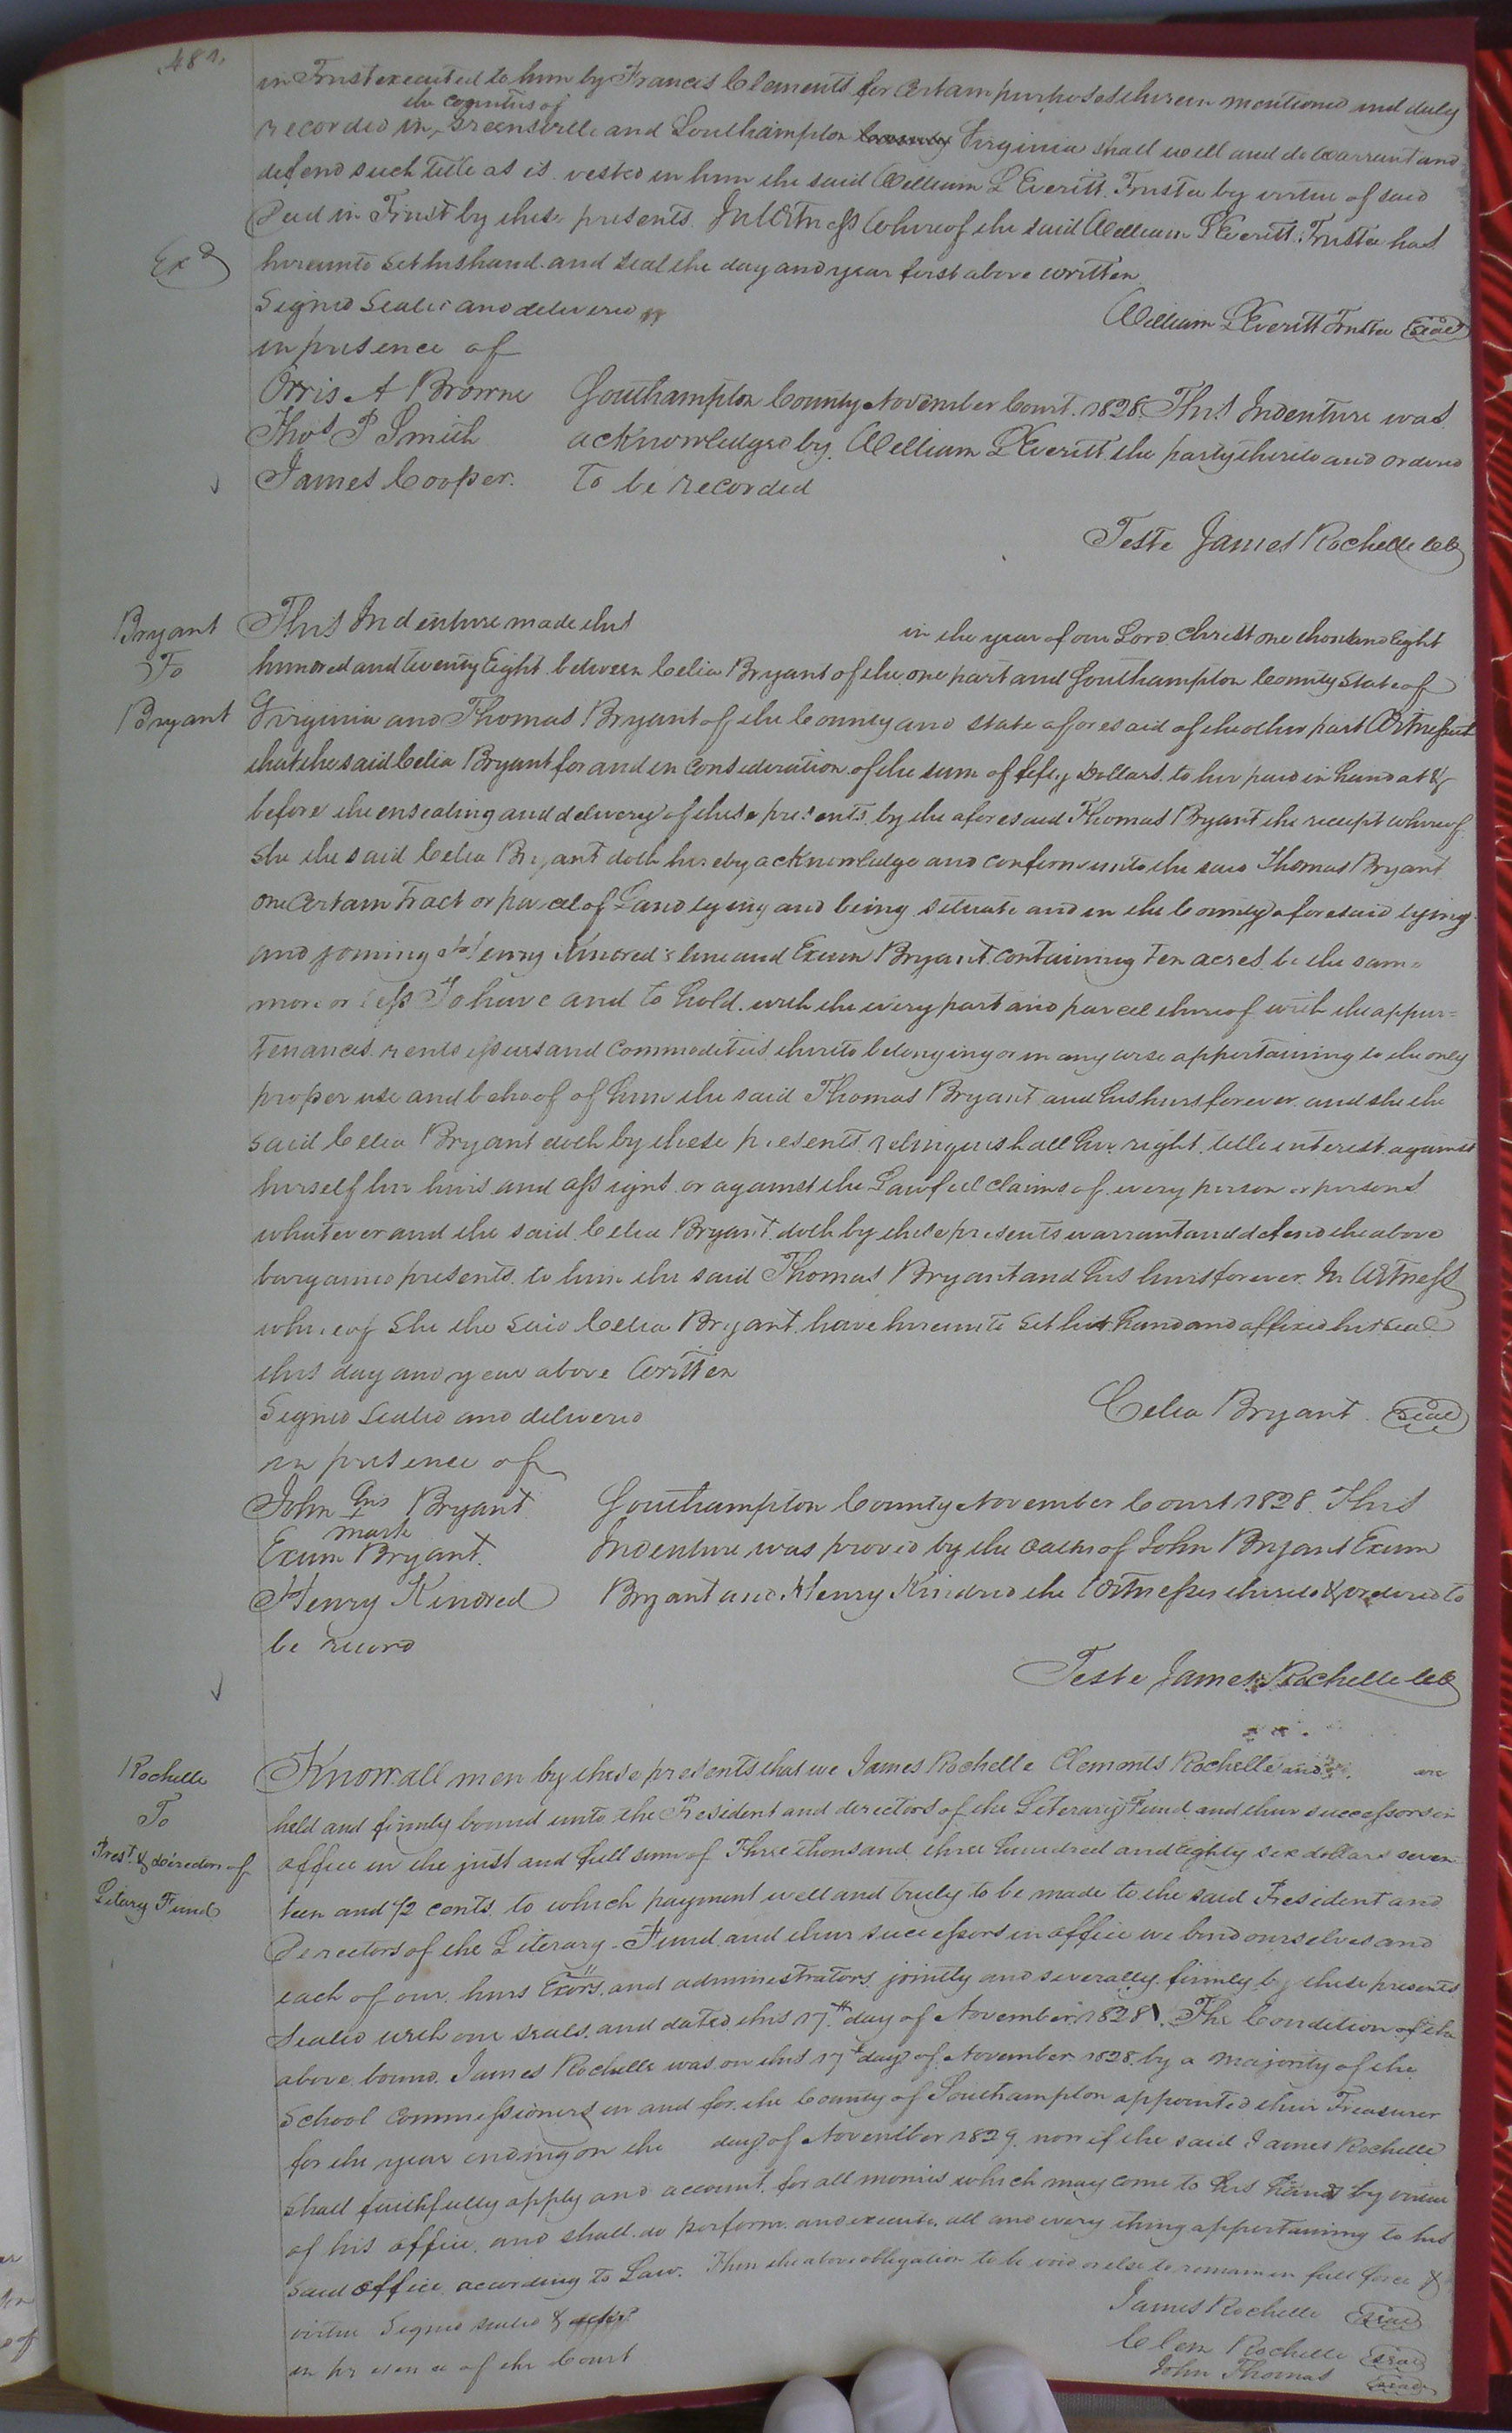 481.
in Trust executed to him by Francis Clements for certain purposes therein mentioned and duly
the counties of
recorded in Greensville and Southampton County Virginia shall well and do warrant and
defend such title as is vested in him the said William L Everitt Trustee by virtue of said
Deed in Trust by these presents. In Witness Whereof the said William L Everitt, Trustee has
Exd
hereunto set his hand and seal the day and year first above written
Signed Sealed and delivered
William L Everitt Trustee Seal
in presence of
Orris A Browne
Southampton County November Court. 1828. This Indenture was
Thos P Smith
acknowledged by William L Everitt the party thereto and ordered
James Cooper.
To be recorded
Teste James Rochelle Clk
Bryant
To
Bryant
This Indenture made this in the year of our Lord Christ one thousand Eight
hundred and twenty Eight between Celia Bryant of the one part and Southampton County State of
Virginia and Thomas Bryant of the County and state afforesaid of the other part Witnesseth
that the said Celia Bryant for and in consideration of the sum of fifty Dollars to her paid in hand at &
before the ensealing and delivery of these presents by the aforesaid Thomas Bryant the receipt whereof
She the said Celia Bryant doth hereby acknowledge and confirm unto the said Thomas Bryant
one certain Tract or parcel of Land lying and being situate and in the County aforesaid lying
and joining Henry Kindred's line and Exum Bryant containing ten acres be the same
more or less To have and to hold with the every part and parcel thereof with the appur=
tenances rents issues and commodities thereto belonging or in any wise appertaining to the only
proper use and behoof of him the said Thomas Bryant and his heirs forever and she the
said Celia Bryant doth by these presents relinquish all her right title interest against
herself her heirs and assigns or against the Lawful claims of every person or persons
whatever and the said Celia Bryant doth by these presents warrant and defend the above
bargained presents to him the said Thomas Bryant and his heirs forever. In Witness
whereof She the said Celia Bryant have hereunto set her hand and affixed her seal
this day and year above Written
Signed Sealed and delivered
Celia Bryant Seal
in presence of
John his Bryant
mark
Southampton County November Court 1828. This
Exum Bryant.
Indenture was proved by the oaths of John Bryant Exum
Henry Kindred
Bryant and Henry Kindred the Witnesses thereto & ordered to
be record
Teste James Rochelle Clk
Rochelle
To
Prest & directors of
Litary Fund
Know all men by these presents that we James Rochelle Clements Rochelle and are
held and firmly bound unto the President and directors of the Literary Fund and their successors in
office in the just and full sum of Three thousand three hundred and Eighty six dollars seven
teen and 1/2 cents. to which payment well and truly to be made to the said President and
Directors of the Literary Fund and their successors in office we bind ourselves and
each of our heirs Exors. and administrators jointly and severally firmly by these presents
Sealed with our seals and dated this 17th day of November 1828. The Condition of the
above bound James Rochelle was on this 17th day of November 1828 by a majority of the
School commissioners in and for the County of Southampton appointed their Treasurer
for the year ending on the day of November 1829. now if the said James Rochelle
shall faithfully apply and account for all monies which may come to his hands by virtue
of his office and shall do perform and execute all and every thing appertaining to his
said office according to Law. Then the above obligation to be void or else to remain in full force &
virtue Signed sealed &
James Rochelle Seal
in presence of the Court
Clem Rochelle Seal
John Thomas Seal